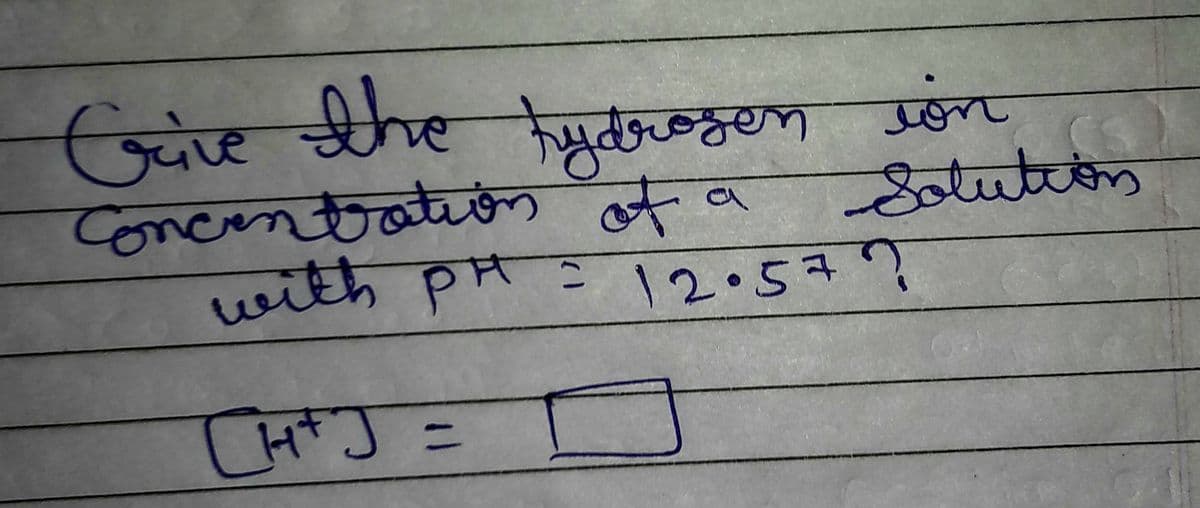 Give the hydrogen ion
Concentration of a Solution
with pH = 12.57?
[H+] =